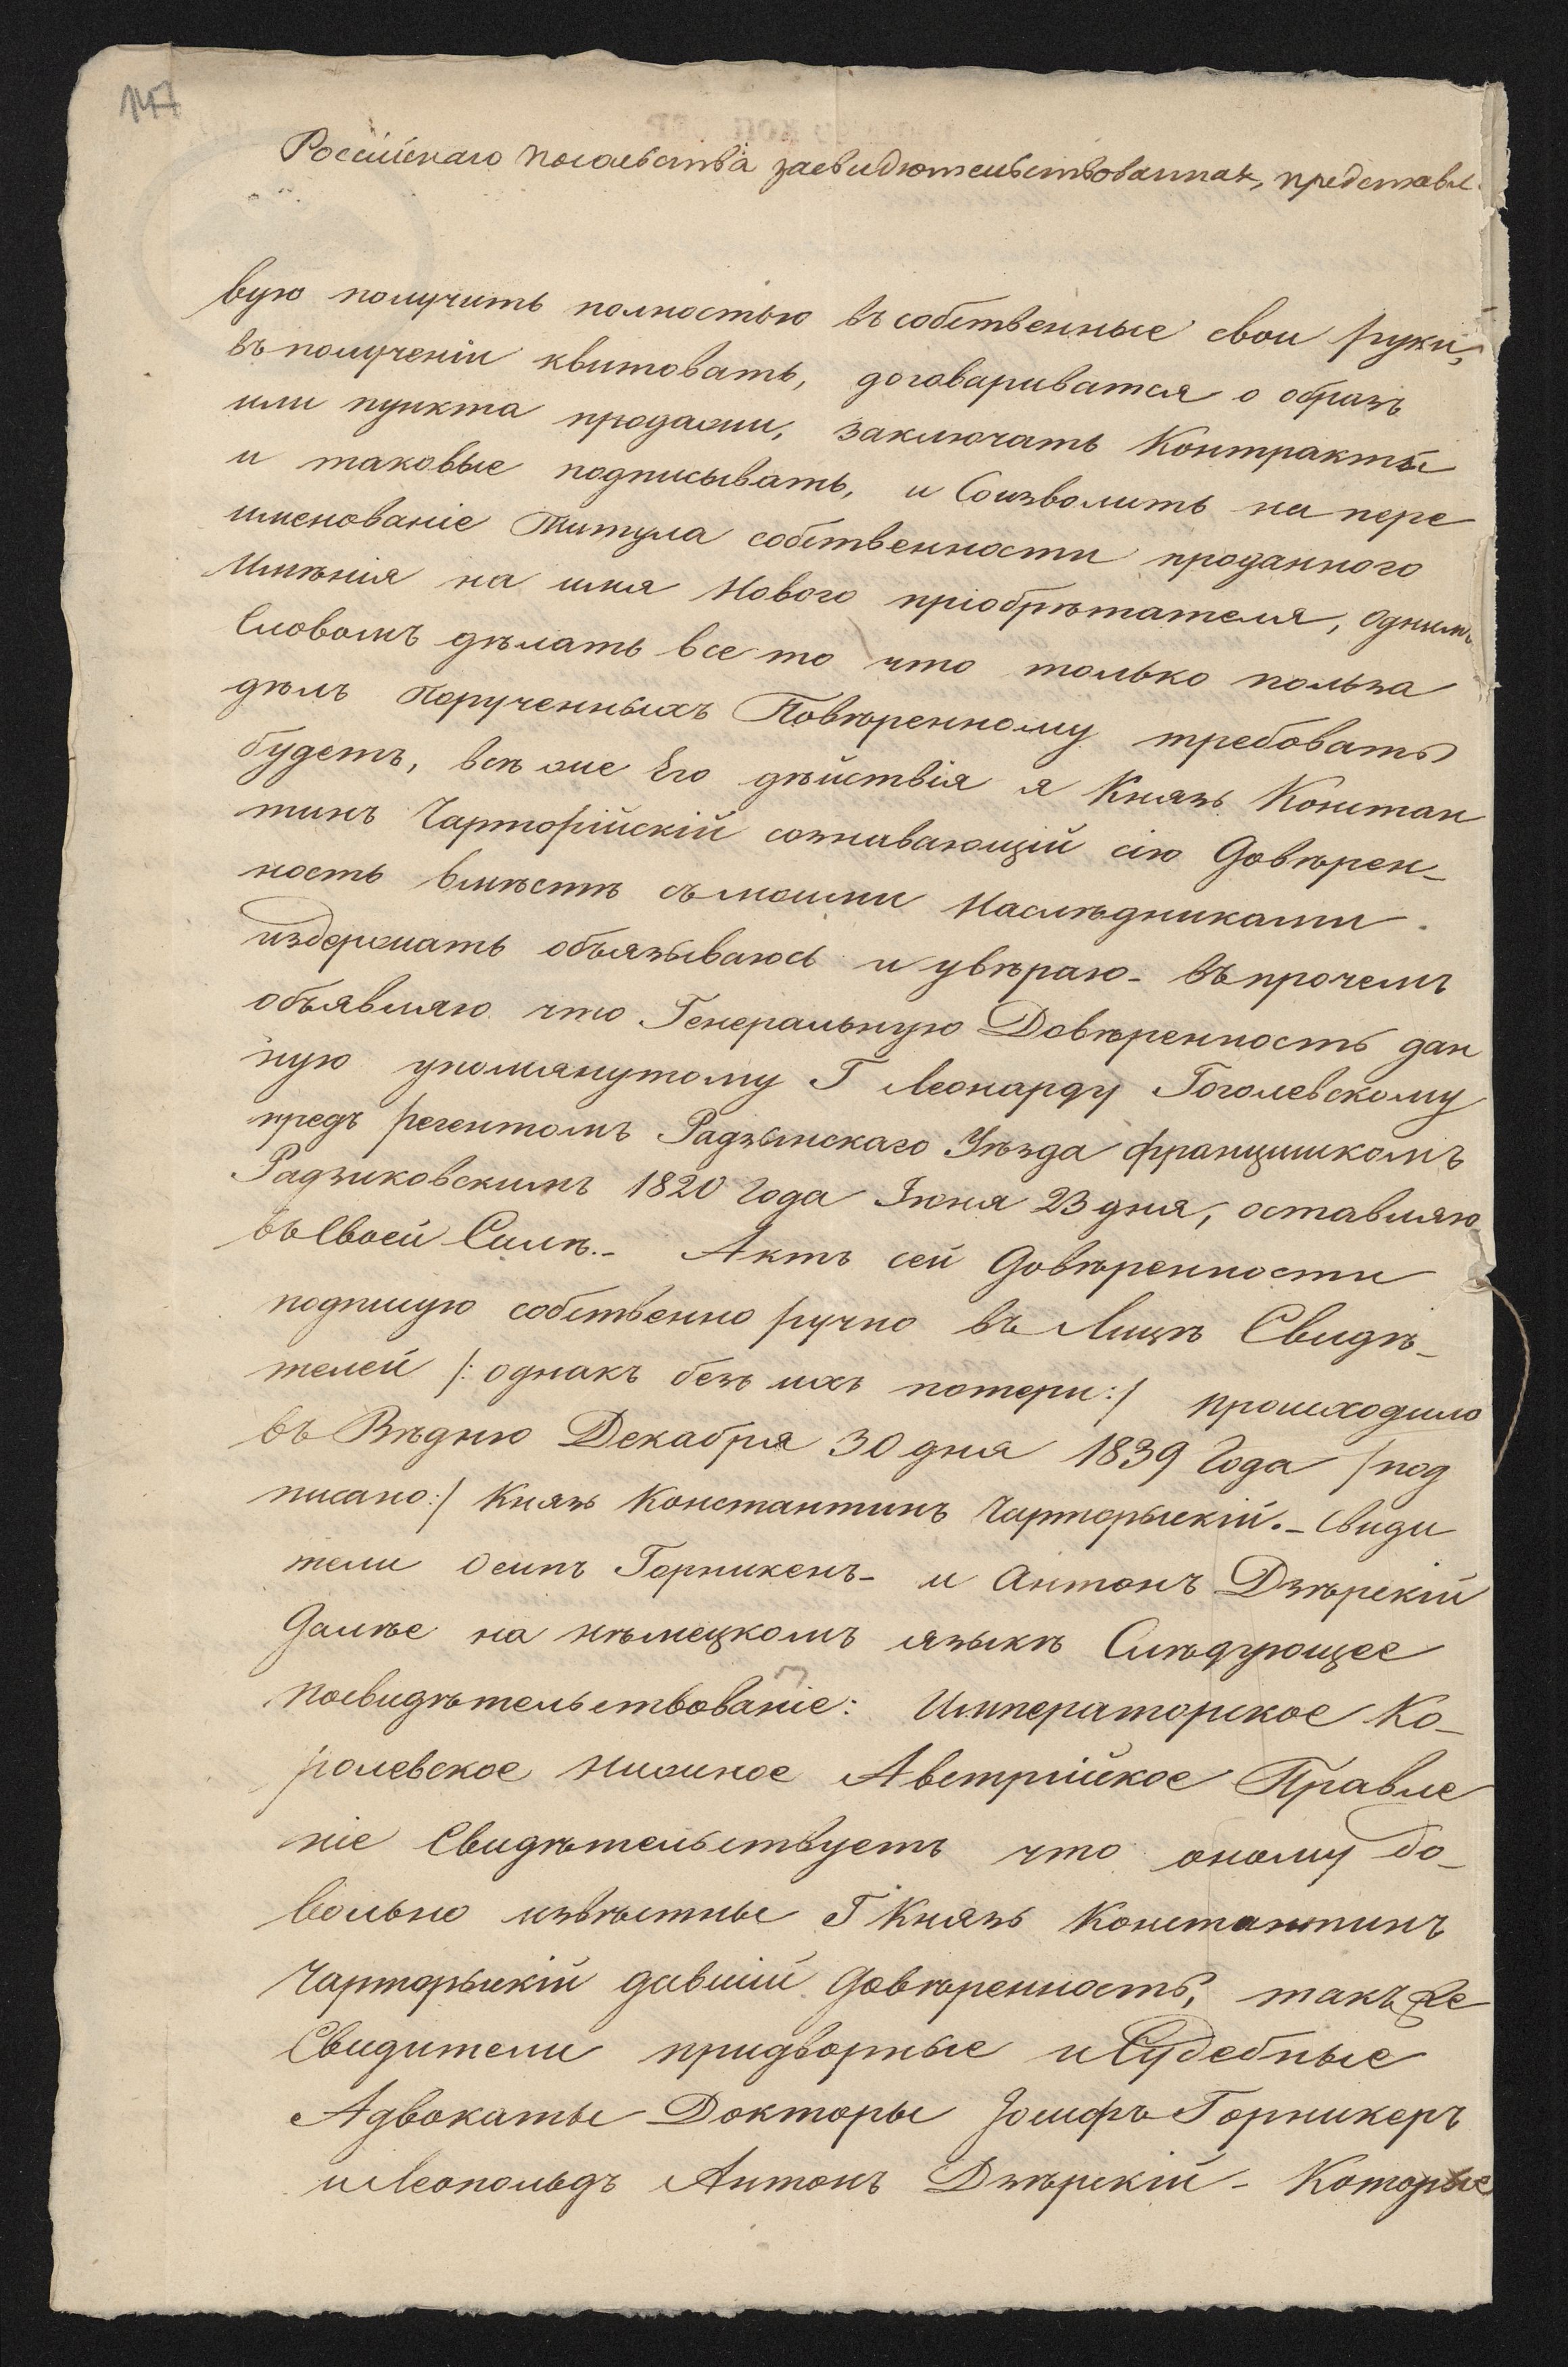 147
Россійскаго посольства засвидѣтельствованная, представл
вую получить полностью въ собственные свои руки,
въ полученіи квитовать, договариватся о образѣ
или пункта продажи, заключать Контракты
и таковые подписывать, и Соизволить на пере
именованіе Титула собственности проданного
Имѣнія на имя Нового пріобрѣтателя, Однимъ
Словомъ дѣлать все то что только польза
дѣлъ Порученныхъ Повѣренному требовать
будетъ, всѣ же Его дѣйствія я Князь Констан
тинъ Чарторійскій сознавающій сію Довѣрен-
ность вмѣстѣ съ моими Наслѣдниками.
издержать объязываюсь и увѣраю- въ прочемъ
объявляю что Генеральную Довѣренность дан
ную упомянутому Г Леонарду Гоголевскому
предъ регентомъ Радзынскаго Уѣзда францишкомъ
Радзиковскимъ 1820 Года Іюня 23 дня, оставляю
въ Своей Силѣ.- Актъ сей Довѣренности
подпишую собственно ручно въ Лицѣ Свидѣ-
телей /: однакъ безъ ихъ потери:/ происходило
въ Вѣдню Декабря 30 дня 1839 Года /под
писано:/ Князь Константинъ Чарторыскій.- Свиди
тели Осипъ Горникенъ- и Антонъ Дзѣрскій
Далѣе на нѣмецкомъ языкѣ Слѣдующее
посвидѣтельствованіе: Императорское Ко-
ролевское Нижное Австрійское Правле
ніе Свидѣтельствуетъ что оному до-
вольно извѣстные Г Князь Константинъ
Чарторыскій давшій Довѣренность, такъ же
Свидители придворные и Судебные
Адвокаты Докторы Іосифъ Горникеръ
и Леопольдъ Антонъ Дзѣрскій - Которые